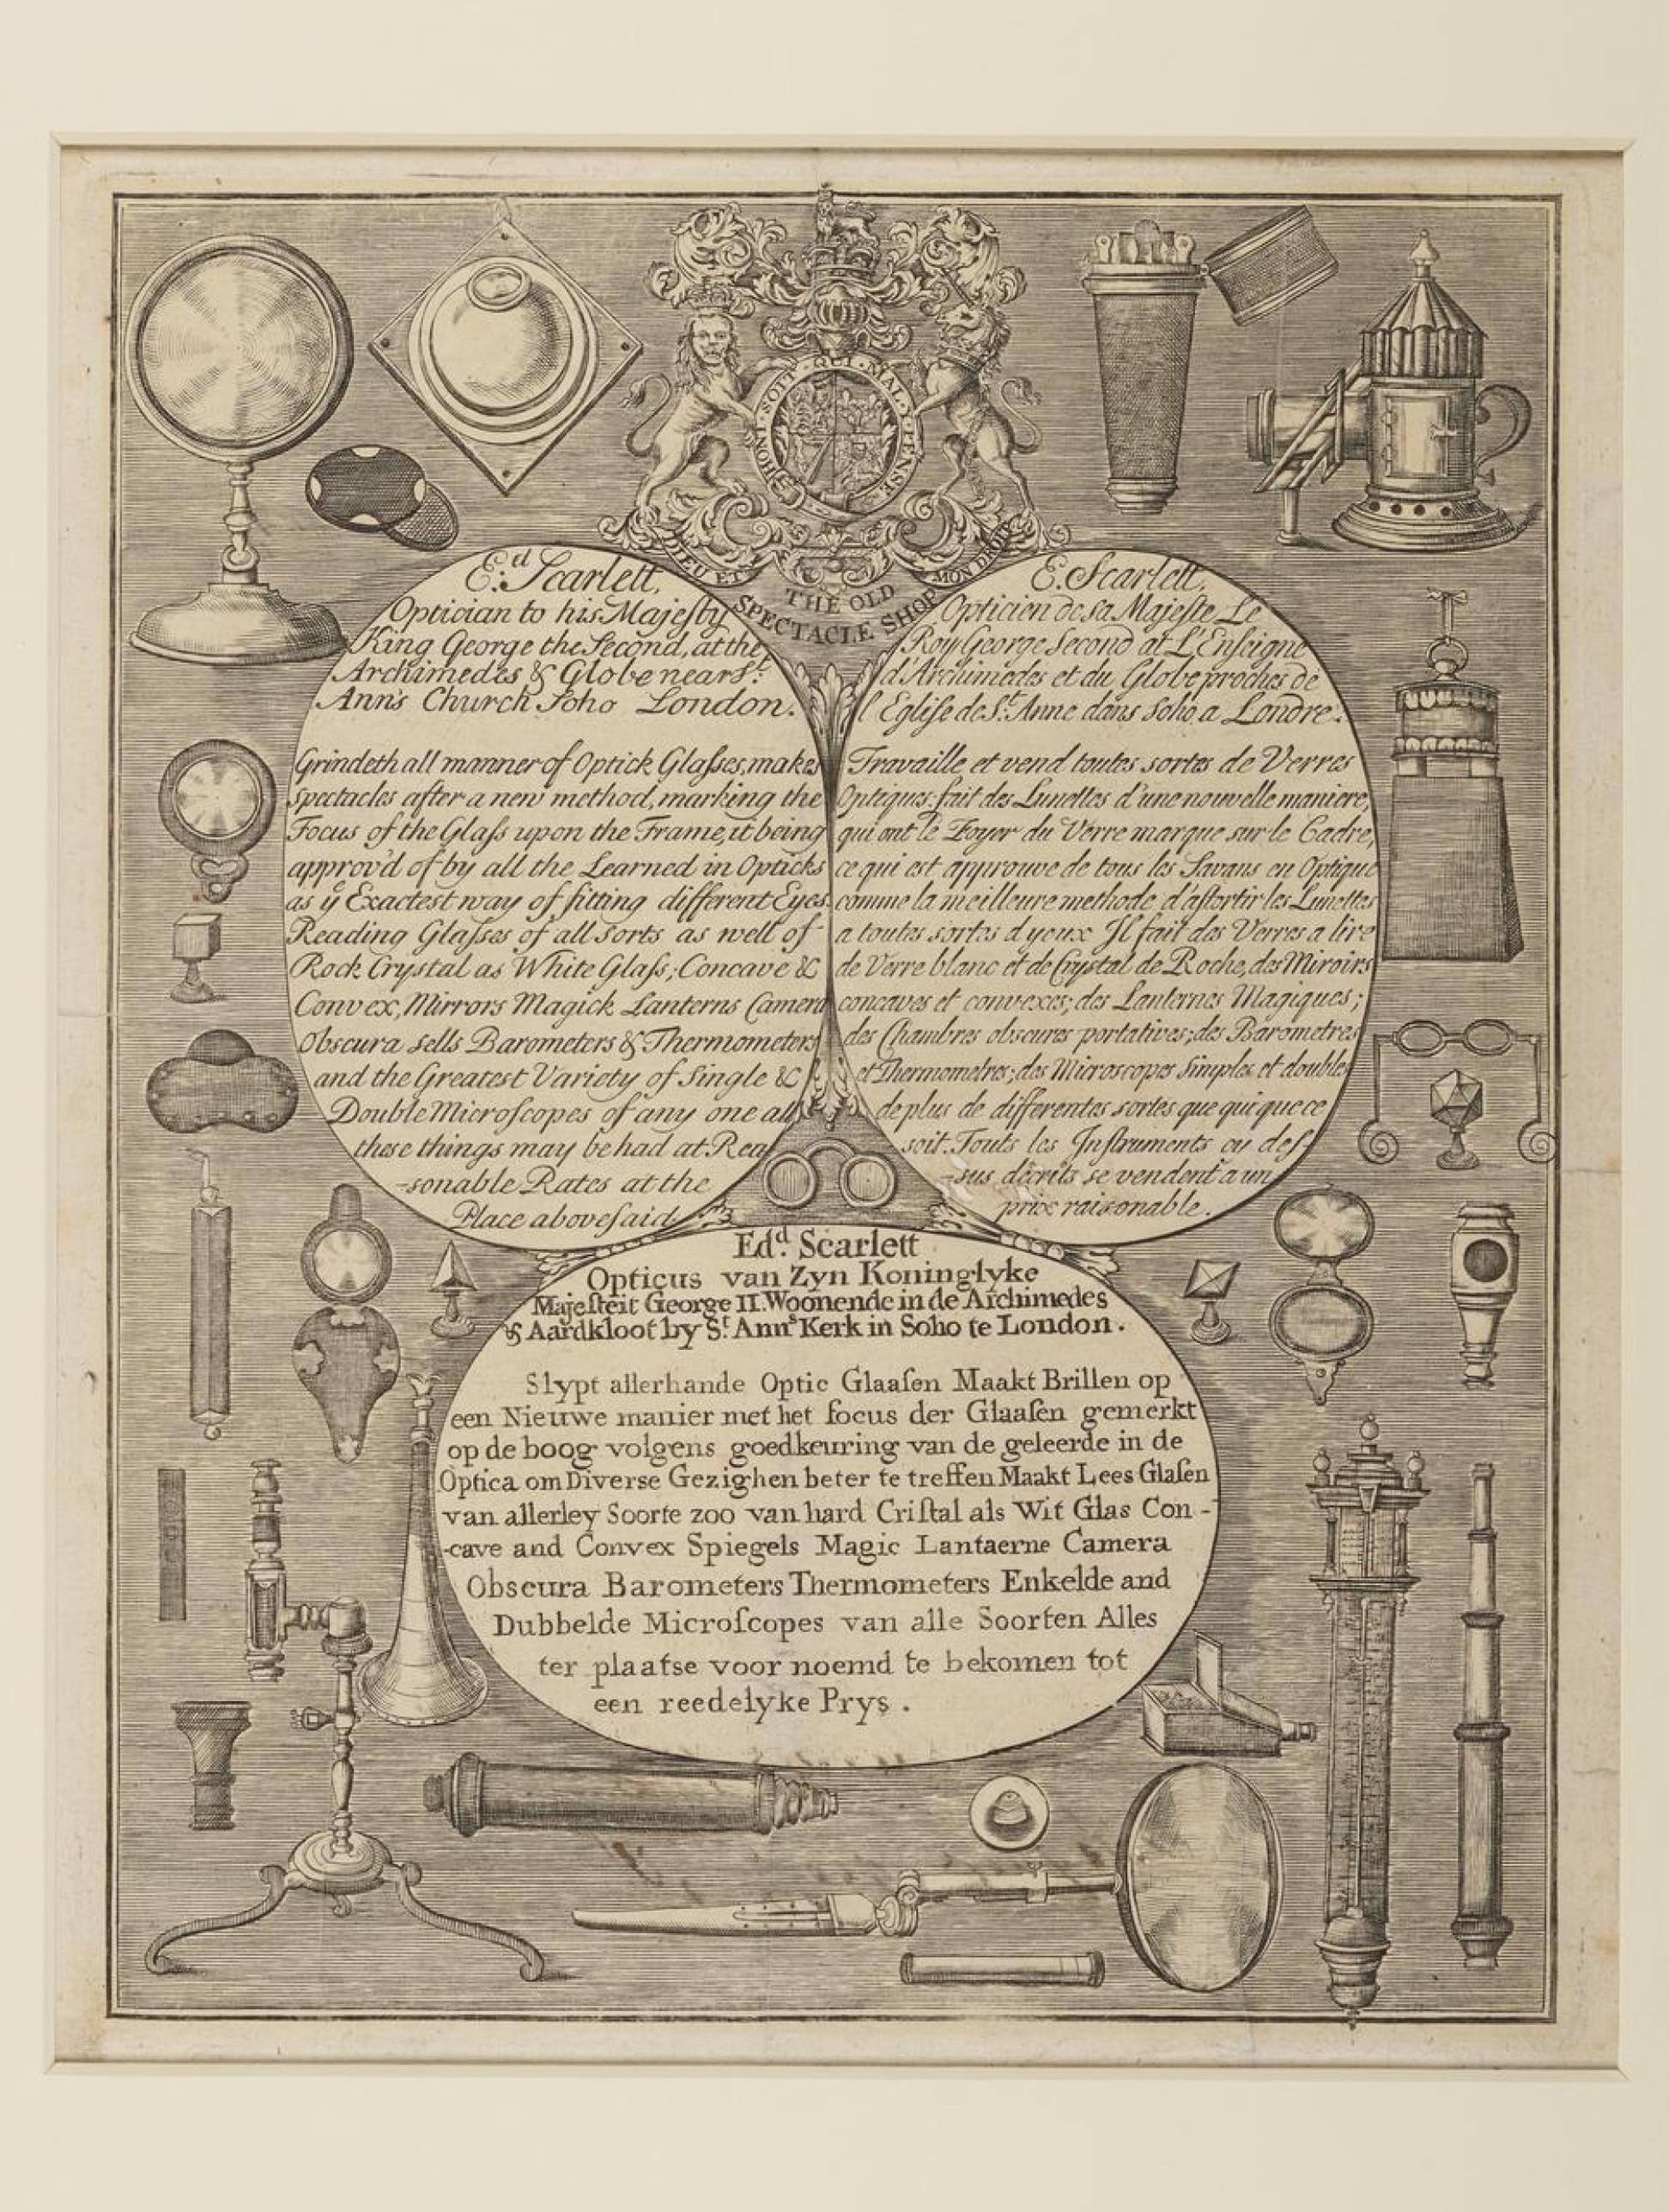 HONI · SOIT · QUI · MAL · Y · PENSE
DIEU ET MON DROIT
THE OLD
SPECTACLE SHOP
E:d Scarlett,
Optician to his Majeſty
King George the Second, at the
Archimedes & Globe near St.
Ann's Church Soho London.
Grindeth all manner of Optick Glaſses, makes
Spectacles after a new method, marking the
Focus of the Glaſs upon the Frame, it being
approv'd of by all the Learned in Opticks
as ye Exactest way of fitting different Eyes.
Reading Glaſses of all Sorts as well of
Rock Crystal as White Glaſs; Concave &
Convex, Mirrors Magick Lanterns Camera
Obscura Sells Barometers & Thermometers
and the Greatest Variety of Single &
Double Microſcopes of any one all
these things may be had at Rea
-sonable Rates at the
Place aboveſaid
E. Scarlett,
Opticien de sa Majeſte Le
Roy George Second at L'Enſeigne
d'Archimedes et du Globe proches de
l'Egliſe de St. Anne dans Soho a Londre.
Travaille et vend toutes sortes de Verres
Optiques: fait des Lunettes d'une nouvelle maniere,
qui ont le Foyer du Verre marque sur le Cadre,
ce qui est approuve de tous les Savans en Optique
comme la meilleure methode d'aſsortir les Lunettes
a toutes sortes d'yeux Il fait des Verres a lire
de Verre blanc et de Crystal de Roche, des Miroirs
concaves et convexes; des Lanternes Magiques;
des Chambres obscures portatives; des Barometres
et Thermometres; des Microscopes Simples et doubles
de plus de differentes sortes que qui que ce
soit. Touts les Inſtruments cy deſ
-sus décrits se vendent a un
prix raisonable.
Edd. Scarlett
Opticus van Zyn Koninglyke
Majeſteit George II. Woonende in de Archimedes
& Aardkloot by St. Anns Kerk in Soho te London.
Slypt allerhande Optic Glaaſen Maakt Brillen op
een Nieuwe manier met het focus der Glaaſen gemerkt
op de boog volgens goedkeuring van de geleerde in de
Optica om Diverse Gezighen beter te treffen Maakt Lees Glaſen
van allerley Soorte zoo van hard Criſtal als Wit Glas Con-
-cave and Convex Spiegels Magic Lantaerne Camera
Obscura Barometers Thermometers Enkelde and
Dubbelde Microſcopes van alle Soorten Alles
ter plaatse voor noemd te bekomen tot
een reedelyke Prys.